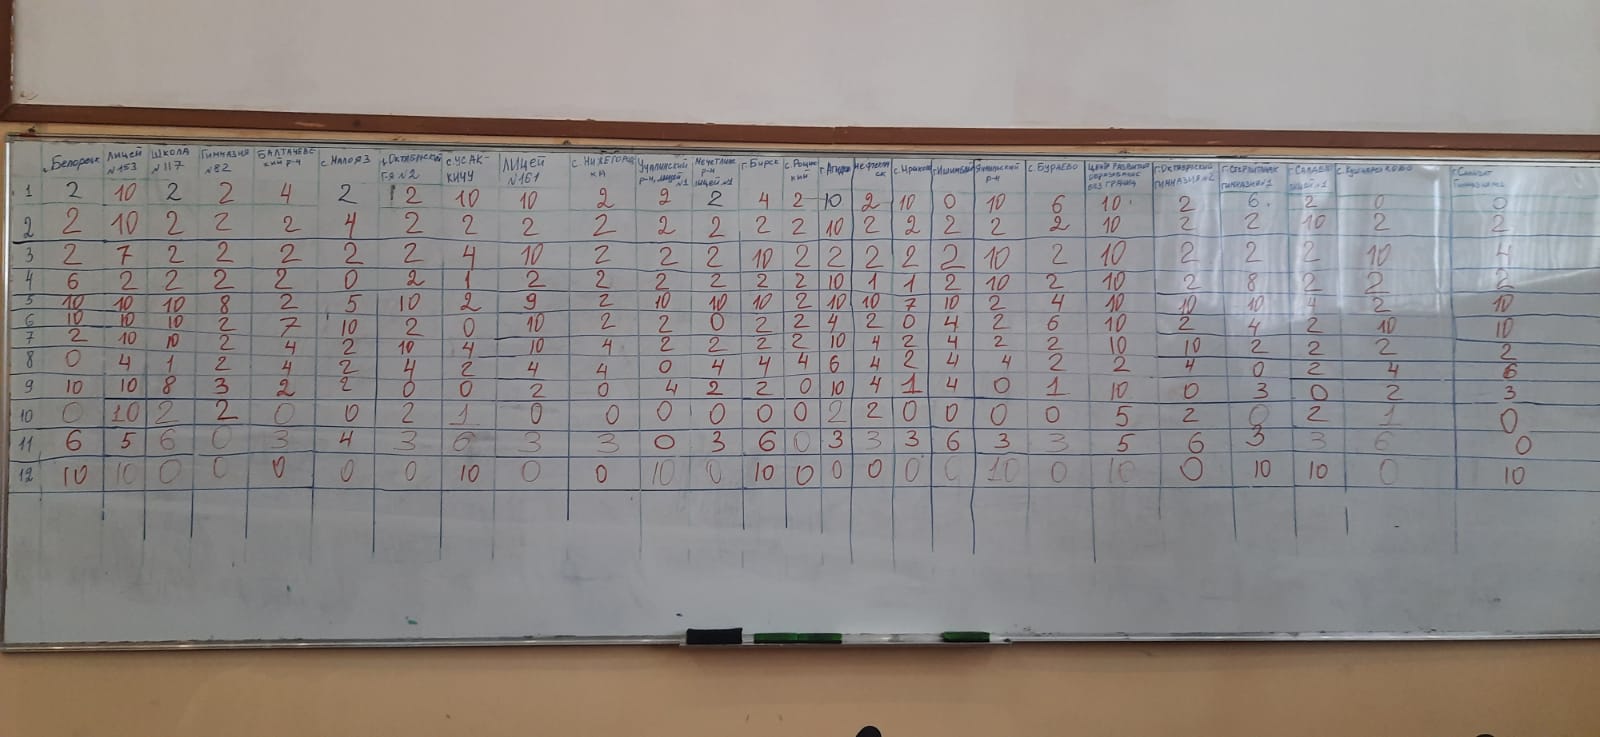 г. Белорецк лицей №153 школа №117 гимназия №82 Балтачевский р-н с. Малояз г. Октябрьский г-я №2 с. Усак-Кичу лицей №161 с. Нижегородка Учалинский р-н, лицей №1 Мечетлинский р-н лицей №1 г. Бирск с. Рощинский г. Агидель Нефтекамск с. Мраково г. Ишимбай р-н с. Бураево Центр развития образования без границ г. Октябрьский гимназия №2 г. Стерлитамак гимназия №1 г. Салават лицей №1 с. Кушнаренково г. Салават гимназия
1 2 10 2 2 4 2 2 10 10 2 2 2 4 2 10 2 10 0 10 6 10 2 6 2 0 0
2 2 10 2 2 2 4 2 2 2 2 2 2 2 2 10 2 2 2 2 2 10 2 2 10 2 2
3 2 7 2 2 2 2 2 4 10 2 2 2 10 2 2 2 2 2 10 2 10 2 2 2 10 4
4 6 2 2 2 2 0 2 1 2 2 2 2 2 2 10 1 1 2 10 2 10 2 8 2 2 2
5 10 10 10 8 2 5 10 2 9 2 10 10 10 2 10 10 7 10 2 4 10 10 10 4 2 10
6 10 10 10 2 7 10 2 0 10 2 2 0 2 2 4 2 0 4 2 6 10 2 4 2 10 10
7 2 10 10 2 4 2 10 4 10 4 2 2 2 2 10 4 2 4 2 2 10 10 2 2 2 2
8 0 4 1 2 4 2 4 2 4 4 0 4 4 4 6 4 2 4 4 2 2 4 0 2 4 6
9 10 10 8 3 2 2 0 0 2 0 4 2 2 0 10 4 1 4 0 1 10 0 3 0 2 3
10 0 10 2 2 0 0 2 1 0 0 0 0 0 0 2 2 0 0 0 0 5 2 0 2 1 0
11 6 5 6 0 3 4 3 6 3 3 0 3 6 0 3 3 3 6 3 3 5 6 3 3 6 0
12 10 10 0 0 0 0 0 10 0 0 10 0 10 0 0 0 0 0 10 0 10 0 10 10 0 10